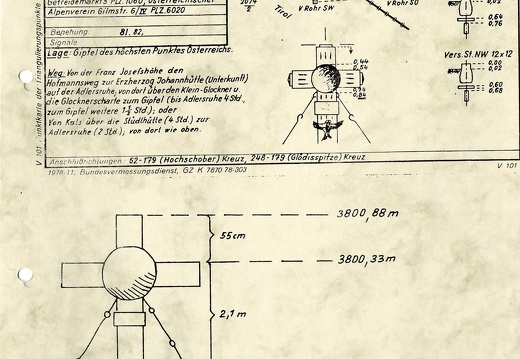 Alpenverein Gilmstr. 6/IV PLZ. 6020
Begehung 81, 82,
Signale
Tirol
V Rohr SW
V Rohr SO
Lage: Gipfel des höchsten Punktes Österreichs.
Weg: Von der Franz Josefshöhe den
Hofmannsweg zur Erzherzog Johannhütte (Unterkunft)
auf der Adlersruhe, von dort über den Klein-Glockner u.
die Glocknerscharte zum Gipfel (bis Adlersruhe 4 Std.,
zum Gipfel weitere 1½ Std.); oder
Von Kals über die Stüdlhütte (4 Std.) zur
Adlersruhe (2 Std.), von dort wie oben.
0,44
0,54
0,74
0,84
0,64
0,76
Vers. St. NW 12×12
0,00
0,02
0,60
0,68
Anschlußrichtungen: 52-179 (Hochschober) Kreuz, 248-179 (Glödisspitze) Kreuz
1978-11, Bundesvermessungsdienst, GZ K 7870 78-303
V 101
V 101 Punktkarte der Triangulierungspunkte
3800,88 m
55 cm
3800,33 m
2,1 m